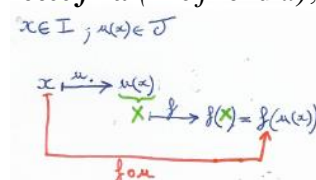 x ∈ I ; u(x) ∈ J
x u. u(x)
X f f(X) = f(u(x))
f o u